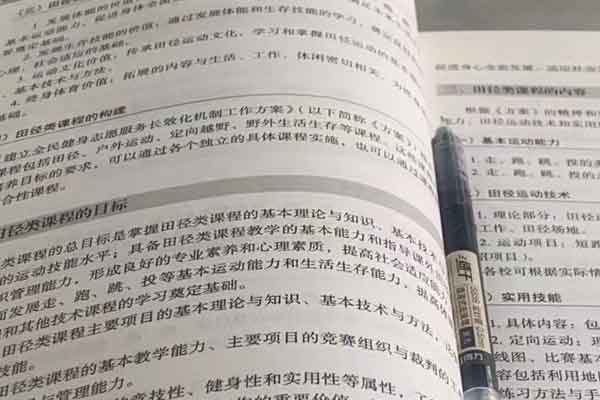 1. 发展体能的价值
基本运动能力，促进身体全面
2. 发展生存技能的价值：通过发展体能和生存技能的学习，奠定良
心理、社会适应的基础。
3. 运动文化价值：传承田径运动文化，学习和掌握田径运动的基
基本技术与方法。
4. 健身体育价值：拓展的内容与生活、工作、休闲密切相关，为
奠定基础。
）田径类课程的构建
建立全民健身志愿服务长效化机制工作方案》（以下简称《方案》）
课程包括田径、户外运动、定向越野、野外生活生存等课程，这些
培养目标的要求，可以通过各个独立的具体课程实施，也可以通过
合性课程。
田径类课程的目标
类课程的总目标是掌握田径类课程的基本理论与知识、基本技术
的运动技能水平；具备田径类课程教学的基本能力和指导课外
织管理能力，形成良好的专业素养和心理素质，提高社会适应能力
面发展走、跑、跳、投等基本运动能力和生活生存能力，提高体
和其他技术课程的学习奠定基础。
田径类课程主要项目的基本理论与知识、基本技术与方法，
径类课程的基本教学能力、主要项目的竞赛组织与裁判的
与管理能力。
的竞技性、健身性和实用性等属性，工
的重要价值
促进身心全面发展、适应社会
三、田径类课程的内容
根据《方案》的精神和
能力、田径运动技术和实用
）基本运动能力
1. 走、跑、跳、投的
2. 走、跑、跳、投的
）田径运动技术
1. 理论部分：田径
工作、田径场地。
2. 运动项目：短
各校可根据实际情
）实用技能
1. 具体内容：包
2. 定向运动：理
线图、比赛基本
容包括利用地
练习方法与手